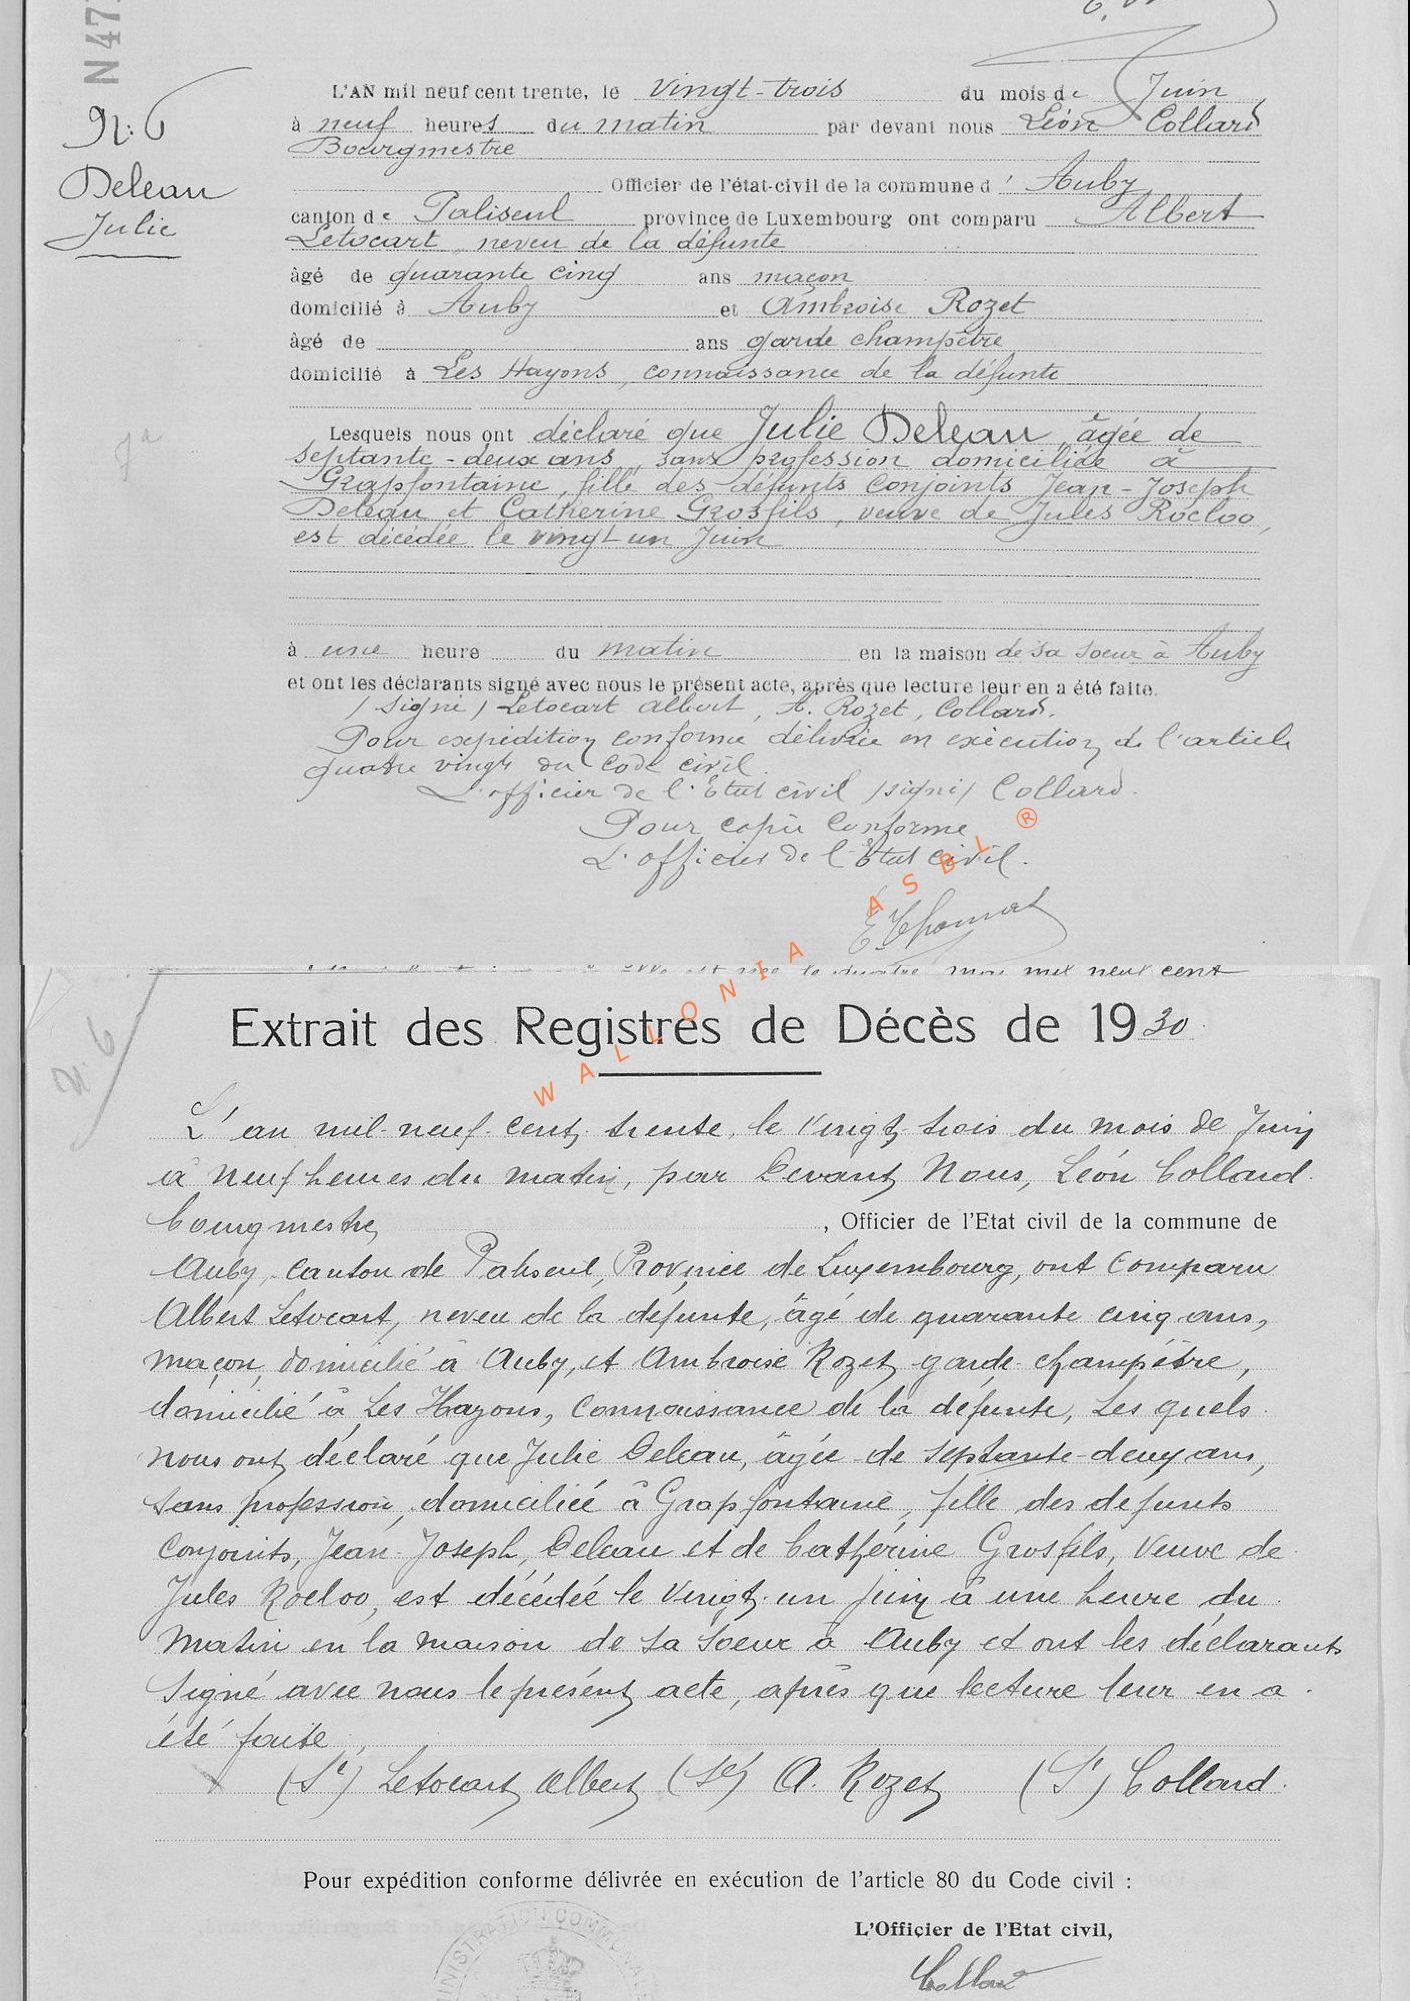 N 47
N. 6
Deleau
Julie
L'AN mil neuf cent trente, le vingt-trois du mois de Juin
à neuf heures du matin par devant nous Léon Collard
Bourgmestre
Officier de l'état-civil de la commune d' Auby
canton de Paliseul province de Luxembourg ont comparu Albert
Letocart, neveu de la défunte
âgé de quarante cinq ans maçon
domicilié à Auby et Ambroise Rozet
âgé de ans garde champêtre
domicilié à Les Hayons, connaissance de la défunte
Lesquels nous ont déclaré que Julie Deleau, âgée de
septante-deux ans, sans profession domiciliée à
Grapfontaine, fille des défunts conjoints Jean-Joseph
Deleau et Catherine Grosfils, veuve de Jules Rocloo,
est décédée le vingt un Juin
à une heure du matin en la maison de sa soeur à Auby
et ont les déclarants signé avec nous le présent acte, après que lecture leur en a été faite.
/ signé / Letocart Albert, A. Rozet, Collard.
Pour expédition conforme délivrée en exécution de l'article
quatre vingt du code civil.
L'officier de l'Etat civil /signé/ Collard.
Pour copie conforme
L'officier de l'Etat civil.
E. Thomas
WALLONIA ASBL ®
mil neuf cent
N. 6
Extrait des Registres de Décès de 1930.
L'an mil-neuf-cent trente, le vingt trois du mois de Juin
à neuf heures du matin, par Devant Nous, Léon Collard
bourgmestre, Officier de l'Etat civil de la commune de
Auby, canton de Paliseul, Province de Luxembourg, ont comparu
Albert Letocart, neveu de la défunte, âgé de quarante cinq ans,
maçon, domicilié à Auby, et Ambroise Rozet garde-champêtre,
domicilié à Les Hayons, connaissance de la défunte, Les quels
nous ont déclaré que Julie Deleau, âgée de septante-deux ans,
sans profession, domiciliée à Grapfontaine, fille des défunts
conjoints, Jean-Joseph, Deleau et de Cathérine Grosfils, veuve de
Jules Rocloo, est décédée le vingt-un juin à une heure du
matin en la maison de sa soeur à Auby et ont les déclarants
signé avec nous le présent acte, après que lecture leur en a
été faite,
(Sé) Letocart Albert (Sé) A. Rozet (Sé) Collard.
Pour expédition conforme délivrée en exécution de l'article 80 du Code civil :
L'Officier de l'Etat civil,
Collard
ADMINISTRATION COMMUNALE